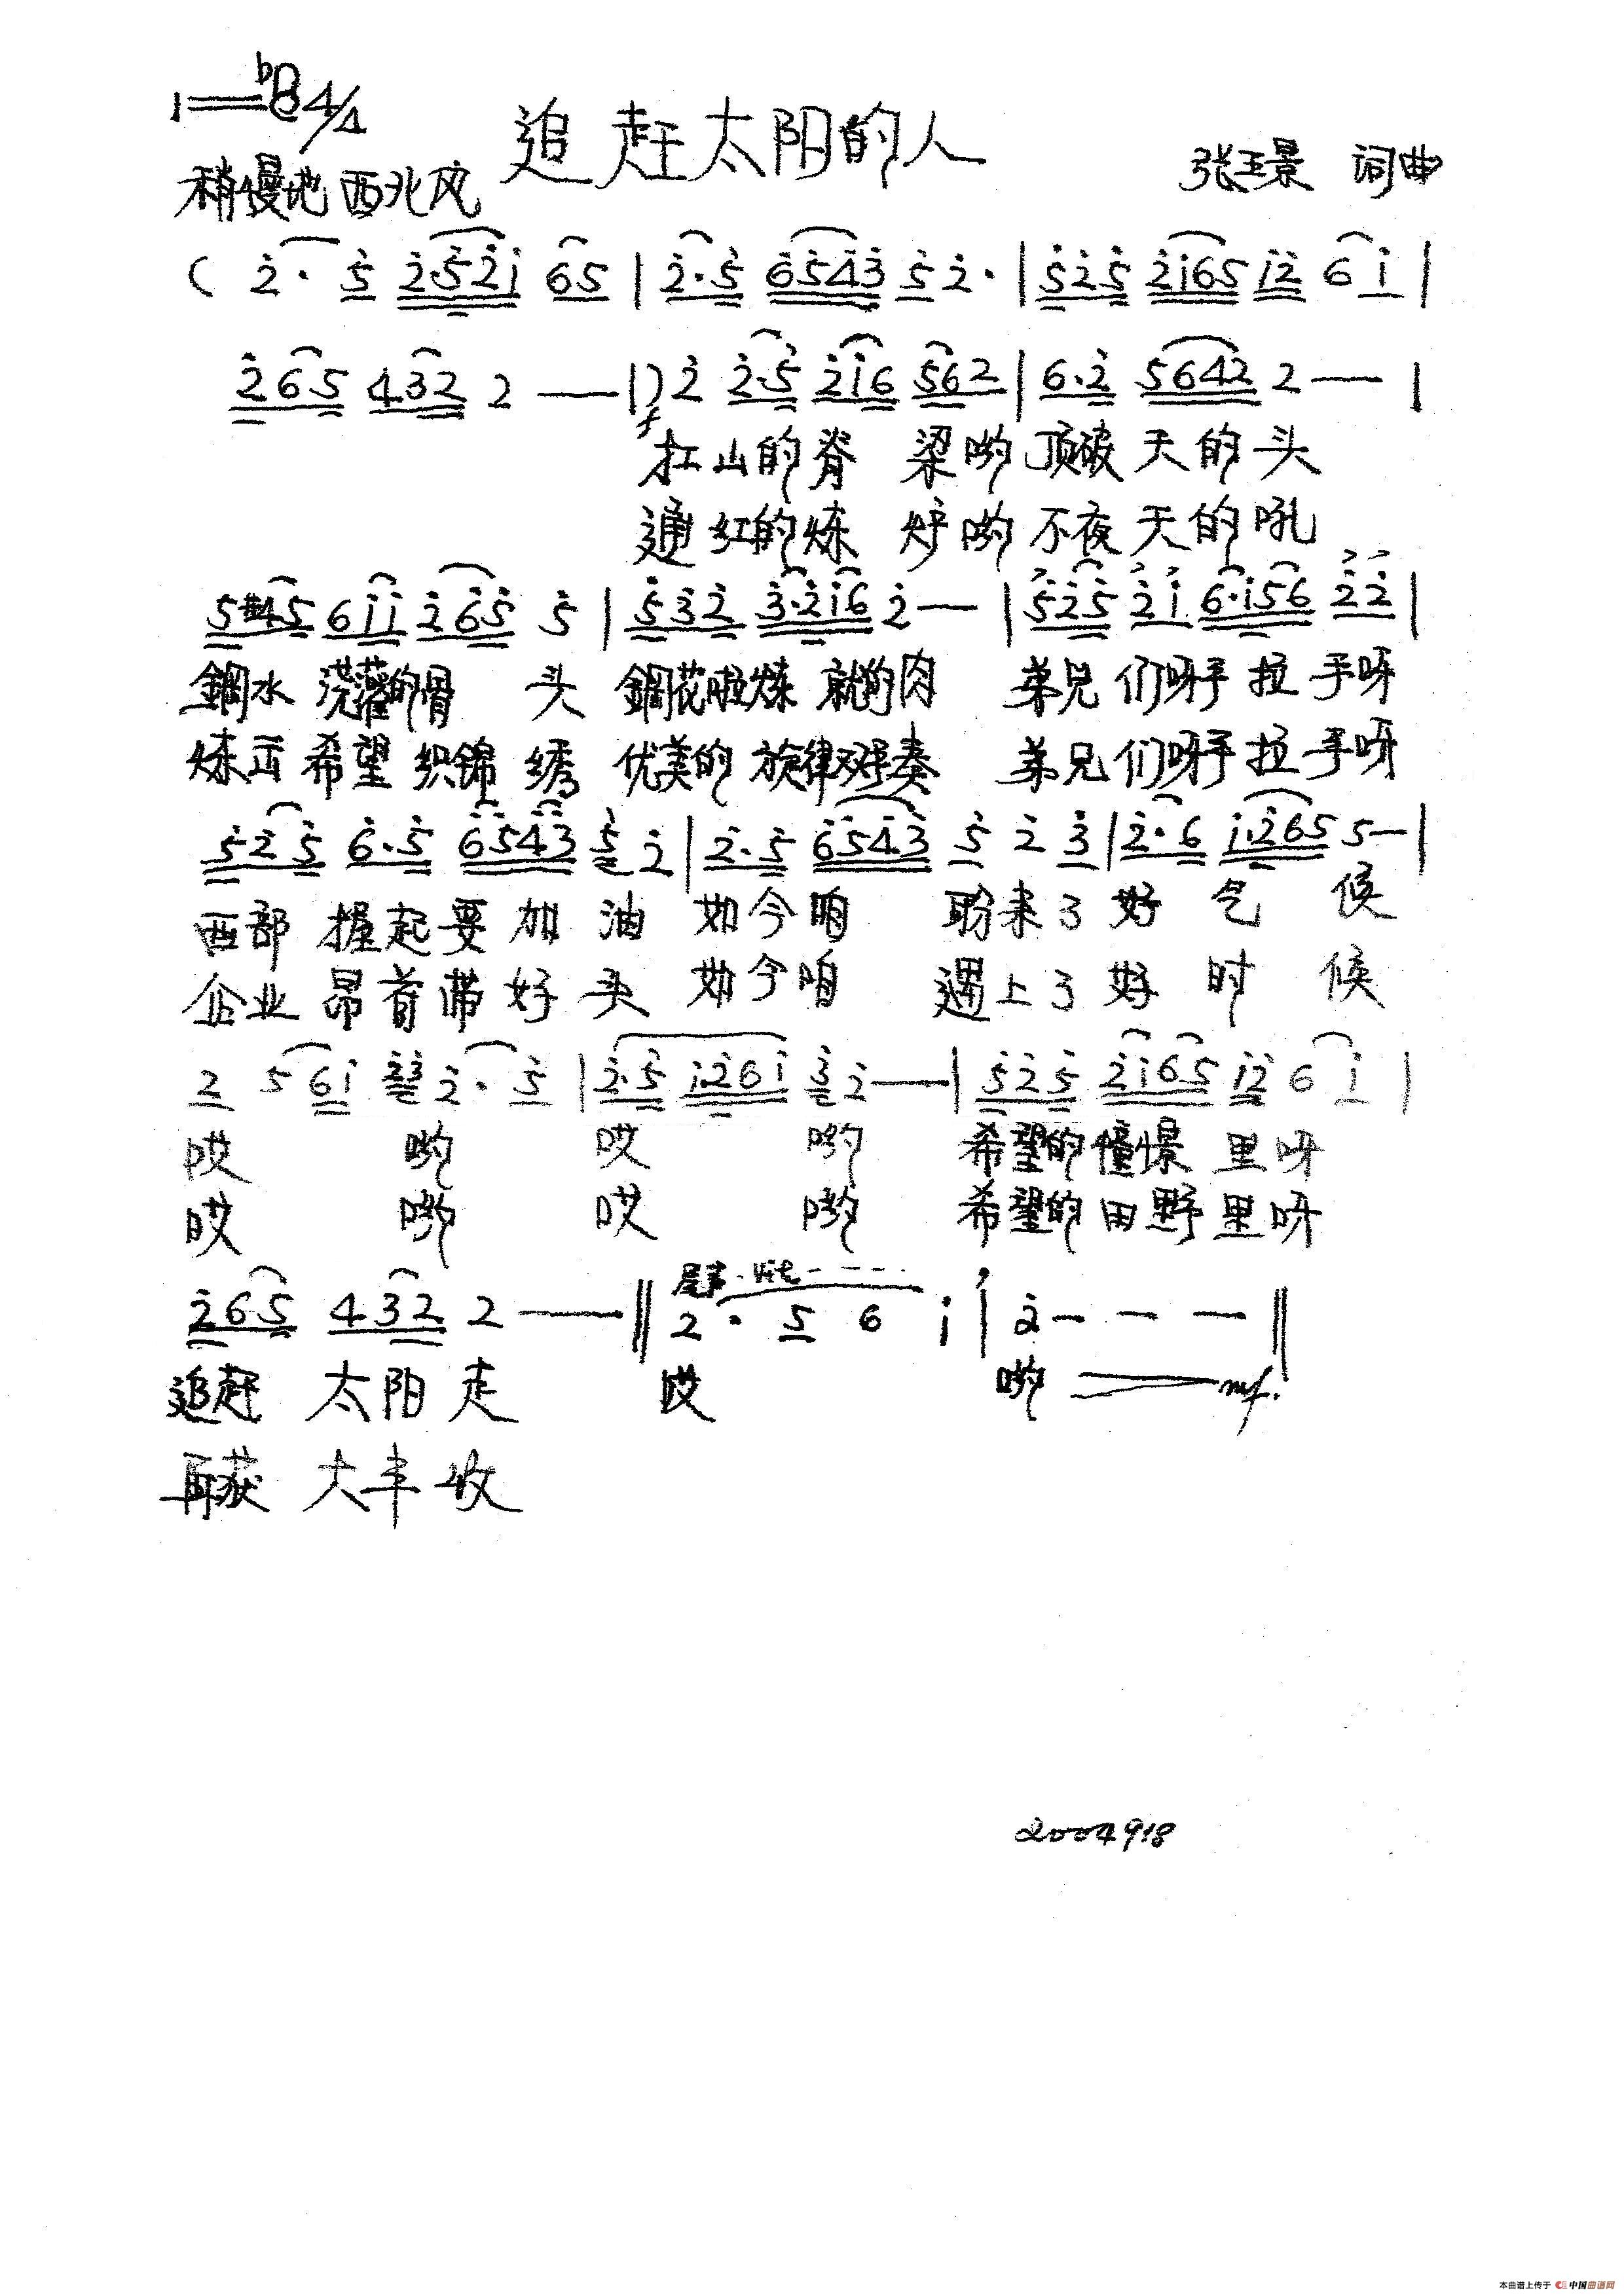 1=♭B 4/4
追赶太阳的人
稍慢地 西北风
张玉景 词曲
( 2̇· 5̇ 2̇·5̇2̇i̇ 65 | 2̇·5̇ 6̇5̇4̇3̇ 5̇2̇· | 5̇2̇5̇ 2̇i̇65 i̇2̇ 6i̇ |
2̇65 432 2 — |) 2̇ 2̇·5̇ 2̇i̇6 562 | 6·2̇ 5642 2 — |
f
扛山的脊 梁哟 顶破 天的头
通红的炼 炉哟 不夜 天的吼
5#45 6i̇i̇ 2̇6̇5̇ 5̇ | 5̇3̇2̇ 3̇·2̇i̇6 2̇ — | 5̇2̇5̇ 2̇i̇ 6·i̇56 2̇2̇ |
鋼水 浇灌的骨 头 鋼花啦炼 就的肉 弟兄 们呀手 拉 手呀
炼 希望 织錦 绣 优美的 旋律 奏 弟兄 们呀手 拉 手呀
5̇2̇5̇ 6̇·5̇ 6̇5̇4̇3̇ 5̇ 2̇ | 2̇·5̇ 6̇5̇4̇3̇ 5̇ 2̇ 3̇ | 2̇·6 i̇·2̇65 5— |
西部 握起要 加 油 如今咱 盼来了 好 气 候
企业 昂首带 好 头 如今咱 遇上了 好 时 候
2 5 6i̇ 2̇3̇ 2̇· 5̇ | 2̇·5̇ i̇·2̇6i̇ 3̇ 2̇ — | 5̇2̇5̇ 2̇i̇65 i̇2̇ 6 i̇ |
哎 哟 哎 哟 希望的 憧憬 里呀
哎 哟 哎 哟 希望的 田野 里呀
尾声 rit - - - -
2̇65 432 2 — ‖ 2· 5 6 i̇ | 2̇ — — — ‖
追赶 太阳 走 哎 哟 mf.
再获 大丰 收
2004918
本曲谱上传于 中国曲谱网